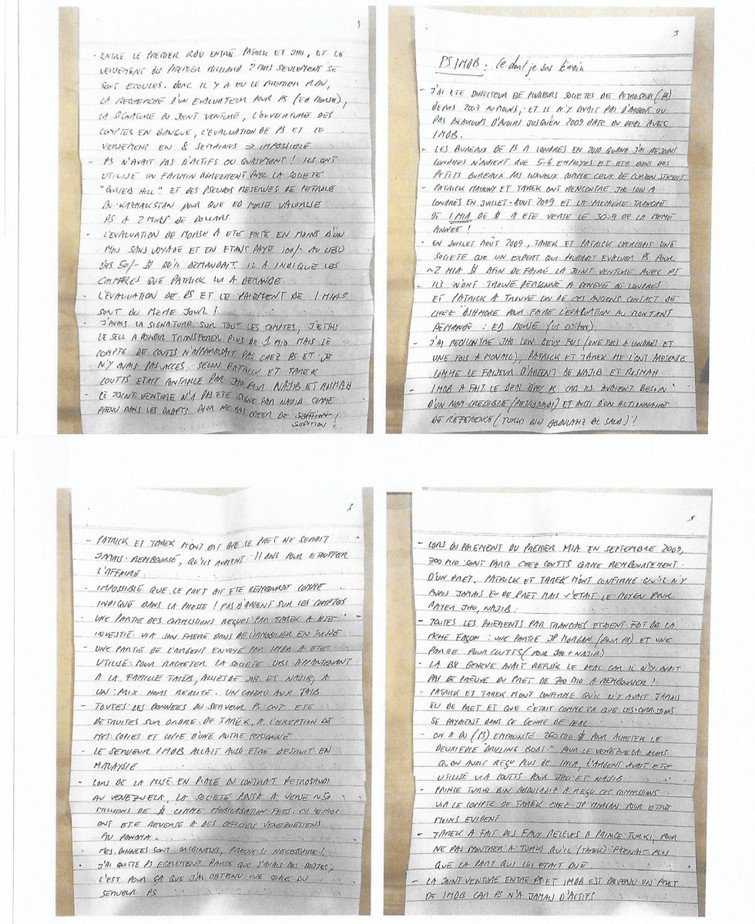 1
- ENTRE LE PREMIER RDV ENTRE PATRICK ET JHO, ET LE
VERSEMENT DU PREMIER MILLIARD 2 MOIS SEULEMENT SE
SONT ECOULES. DONC IL Y A EU LE PREMIER RDV,
LA RECHERCHE D'UN EVALUATEUR POUR PS (ED MORSE),
LA SIGNATURE DU JOINT VENTURE, L'OUVERTURE DES
COMPTES EN BANQUE, L'EVALUATION DE PS ET LE
VERSEMENT EN 8 SEMAINES => IMPOSSIBLE
- PS N'AVAIT PAS D'ACTIFS OU QUASIMENT! ILS ONT
UTILISE UN FARMIN AGREEMENT AVEC LA SOCIETE
"BURIED HILL" ET DES PSEUDOS RESERVES DE PETROLE
EN KAZHAKSTAN POUR QUE ED MORSE VALORISE
PS A 2 MIAS DE DOLLARS
- L'EVALUATION DE MORSE A ETE FAITE EN MOINS D'UN
MOIS SANS VOYAGE ET EN ETANT PAYE 100/- AU LIEU
DES 50/- $ QU'IL DEMANDAIT IL A INDIQUE LES
CHIFFRES QUE PATRICK LUI A DEMANDE.
- L'EVALUATION DE PS ET LE PAIEMENT DE 1 MIAS
SONT DU MEME JOUR!
- J'AVAIS LA SIGNATURE SUR TOUT LES COMPTES, J'ETAIS
LE SEUL A POUVOIR TRANSFERER PLUS DE 1 MIO. MAIS LE
COMPTE DE COUTTS N'APPARTENAIT PAS CHEZ PS ET JE
N'Y AVAIS PAS ACCES. SELON PATRICK ET TAREK
COUTTS ETAIT CONTROLE PAR JHO POUR NAJIB ET ROSMAH
- LE JOINT VENTURE N'A PAS ETE SIGNE PAR NAJIB COMME
PREVU DANS LES DRAFTS POUR NE PAS CREER DE
SUSPITION!
3
PS/1MDB: Ce dont je suis témoin
- J'AI ETE DIRECTEUR DE PLUSIEURS SOCIETES DE PETROSAUDI (PS)
DEPUIS 2007 AU MOINS, ET IL N'Y AVAIT PAS D'ARGENT OU
PAS BEAUCOUP D'AVOIRS JUSQU'EN 2009 DATE DU DEAL AVEC
1MDB.
- LES BUREAUX DE PS A LONDRES EN 2010 QUAND J'AI REJOINT
LONDRES N'AVAIENT QUE 5-6 EMPLOYES ET ETAIT DANS DES
PETITS BUREAUX PAS LUXUEUX COMME CEUX DE CURZON STREET
- PATRICK MAHONY ET TAREK ONT RENCONTRE JHO LOW A
LONDRES EN JUILLET-AOUT 2009 ET LA PREMIERE TRANCHE
DE 1 MIA DE $ A ETE VERSE LE 30.9 DE LA MEME
ANNEE!
- EN JUILLET AOUT 2009, TAREK ET PATRICK CHERCHAIT UNE
SOCIETE OU UN EXPERT QUI POURRAIT EVALUER PS POUR
~2 MIA $ AFIN DE FAIRE LA JOINT VENTURE AVEC PS
- ILS N'ONT TROUVE PERSONNE A GENEVE OU LONDRES
ET PATRICK A TROUVE UN DE CES ANCIENS CONTACT DE
CHEZ ASHMORE POUR FAIRE L'EVALUATION AU MONTANT
DEMANDE: ED MORSE
- J'AI RENCONTRE JHO LOW DEUX FOIS (UNE FOIS A LONDRES ET
UNE FOIS A MONACO), PATRICK ET TAREK ME L'ONT PRESENTE
COMME LE FAISEUR D'ARGENT DE NAJIB ET ROSMAH
- 1MDB A FAIT LE DEAL AVEC PS CAR ILS AVAIENT BESOIN
D'UN NOM CREDIBLE (PETROSAUDI) ET AUSSI D'UN ACTIONNAIRE
DE REFERENCE (TURKI BIN ABDULAZIZ AL SAUD)!
- PATRICK ET TAREK M'ONT DIT QUE LE PRET NE SERAIT
JAMAIS REMBOURSE, QU'ILS AVAIENT 11 ANS POUR ETOUFFER
L'AFFAIRE.
- IMPOSSIBLE QUE LE PRET AIT ETE REMBOURSE COMME
INDIQUE DANS LA PRESSE! PAS D'ARGENT SUR LES COMPTES
- UNE PARTIE DES COMMISSIONS REÇUES PAR TAREK A ETE
INVESTIE VIA SON FRERE DANS DE L'IMMOBILIER EN SUISSE
- UNE PARTIE DE L'ARGENT ENVOYE PAR 1MDB A ETE
UTILISE POUR RACHETER LA SOCIETE UBG APPARTENANT
A LA FAMILLE TAIEB, ALLIES DE JHO ET NAJIB, A
UN PRIX HORS REALITE. UN CADEAU AUX TAIB
- TOUTES LES DONNEES DU SERVEUR PS ONT ETE
DETRUITES SUR ORDRE DE TAREK, A L'EXCEPTION DE
MES COPIES ET COPIE D'UNE AUTRE PERSONNE
- LE SERVEUR 1MDB ALLAIT AUSSI ETRE DETRUIT EN
MALAYSIE
- LORS DE LA MISE EN PLACE DU CONTRAT PETROSAUDI
AU VENEZUELA, LA SOCIETE PDVSA A VERSE ~50
MILLIONS DE $ COMME MOBILISATION FEES.
ONT ETE REVERSE A DES OFFICIELS VENEZUELIENS
AU PANAMA.
- MES DONNEES SONT ORIGINALES, PREUVE SI NECESSAIRE!
- J'AI QUITTE PS EGALEMENT PARCE QUE J'AVAIS DES DOUTES,
C'EST POUR ÇA QUE J'AI OBTENU UNE COPIE DU
SERVEUR PS
- LORS DU PAIEMENT DU PREMIER MIA EN SEPTEMBRE 2009,
700 MIO SONT PARTI CHEZ COUTTS COMME REMBOURSEMENT
D'UN PRET, PATRICK ET TAREK M'ONT CONFIRME QU'IL N'Y
AVAIT JAMAIS EU DE PRET MAIS C'ETAIT LE MOYEN POUR
PAYER JHO, NAJIB.
- TOUTES LES PAIEMENTS PAR TRANCHES ETAIENT FAIT DE LA
MEME FAÇON: UNE PARTIE JP MORGAN (POUR PS) ET UNE
PARTIE POUR COUTTS (POUR JHO + NAJIB)
- LA BSI GENEVE AVAIT REFUSE LE DEAL CAR IL N'Y AVAIT
PAS DE PREUVE DU PRET DE 700 MIO A REMBOURSER!
- PATRICK ET TAREK M'ONT CONFIRME QU'IL N'Y AVAIT JAMAIS
EU DE PRET ET QUE C'ETAIT COMME ÇA QUE LES COMMISSIONS
SE PAYAIENT DANS CE GENRE DE DEAL
- ON A DU (PS) EMPRUNTE 260 MIO $ POUR ACHETER LE
DEUXIEME DRILLING BOAT POUR LE VENEZUELA ALORS
QU'ON AVAIT REÇU PLUS DE 1 MIA, L'ARGENT AVAIT ETE
UTILISE VIA COUTTS POUR JHO ET NAJIB
- PRINCE TURKI BIN ABDULAZIZ A REÇU CES COMMISSIONS
VIA LE COMPTE DE TAREK CHEZ JP MORGAN POUR ETRE
MOINS EVIDENT
- TAREK A FAIT DES FAUX RELEVES A PRINCE TURKI, POUR
NE PAS MONTRER A TURKI QU'IL (TAREK) PRENAIT PLUS
QUE LA PART QUI LUI ETAIT DUE
- LA JOINT VENTURE ENTRE PS ET 1MDB EST DEVENU UN PRET
DE 1MDB CAR PS N'A JAMAIS D'ACTIFS